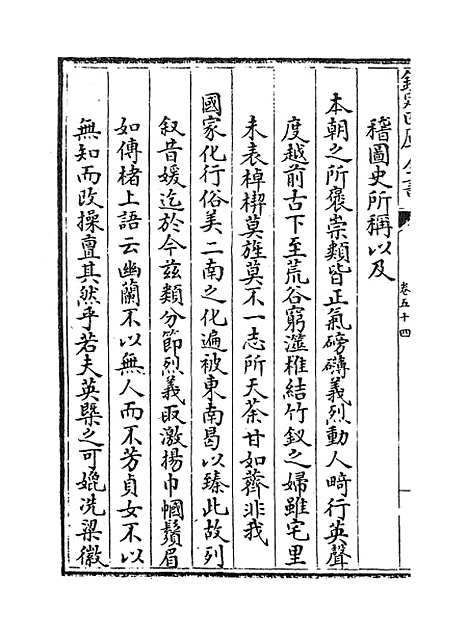 欽定四庫全書
卷五十四
稽圖史所稱以及
本朝之所褒崇類皆正氣磅礴義烈動人畸行英聲
度越前古下至荒谷窮澨椎結竹釵之婦雖宅里
未表棹楔莫旌莫不一志所天荼甘如薺非我
國家化行俗美二南之化遍被東南曷以臻此故列
叙昔媛迄於今兹類分節烈義取激揚巾幗鬚眉
如傅楮上語云幽蘭不以無人而不芳貞女不以
無知而改操亶其然乎若夫英槩之可媲冼梁徽